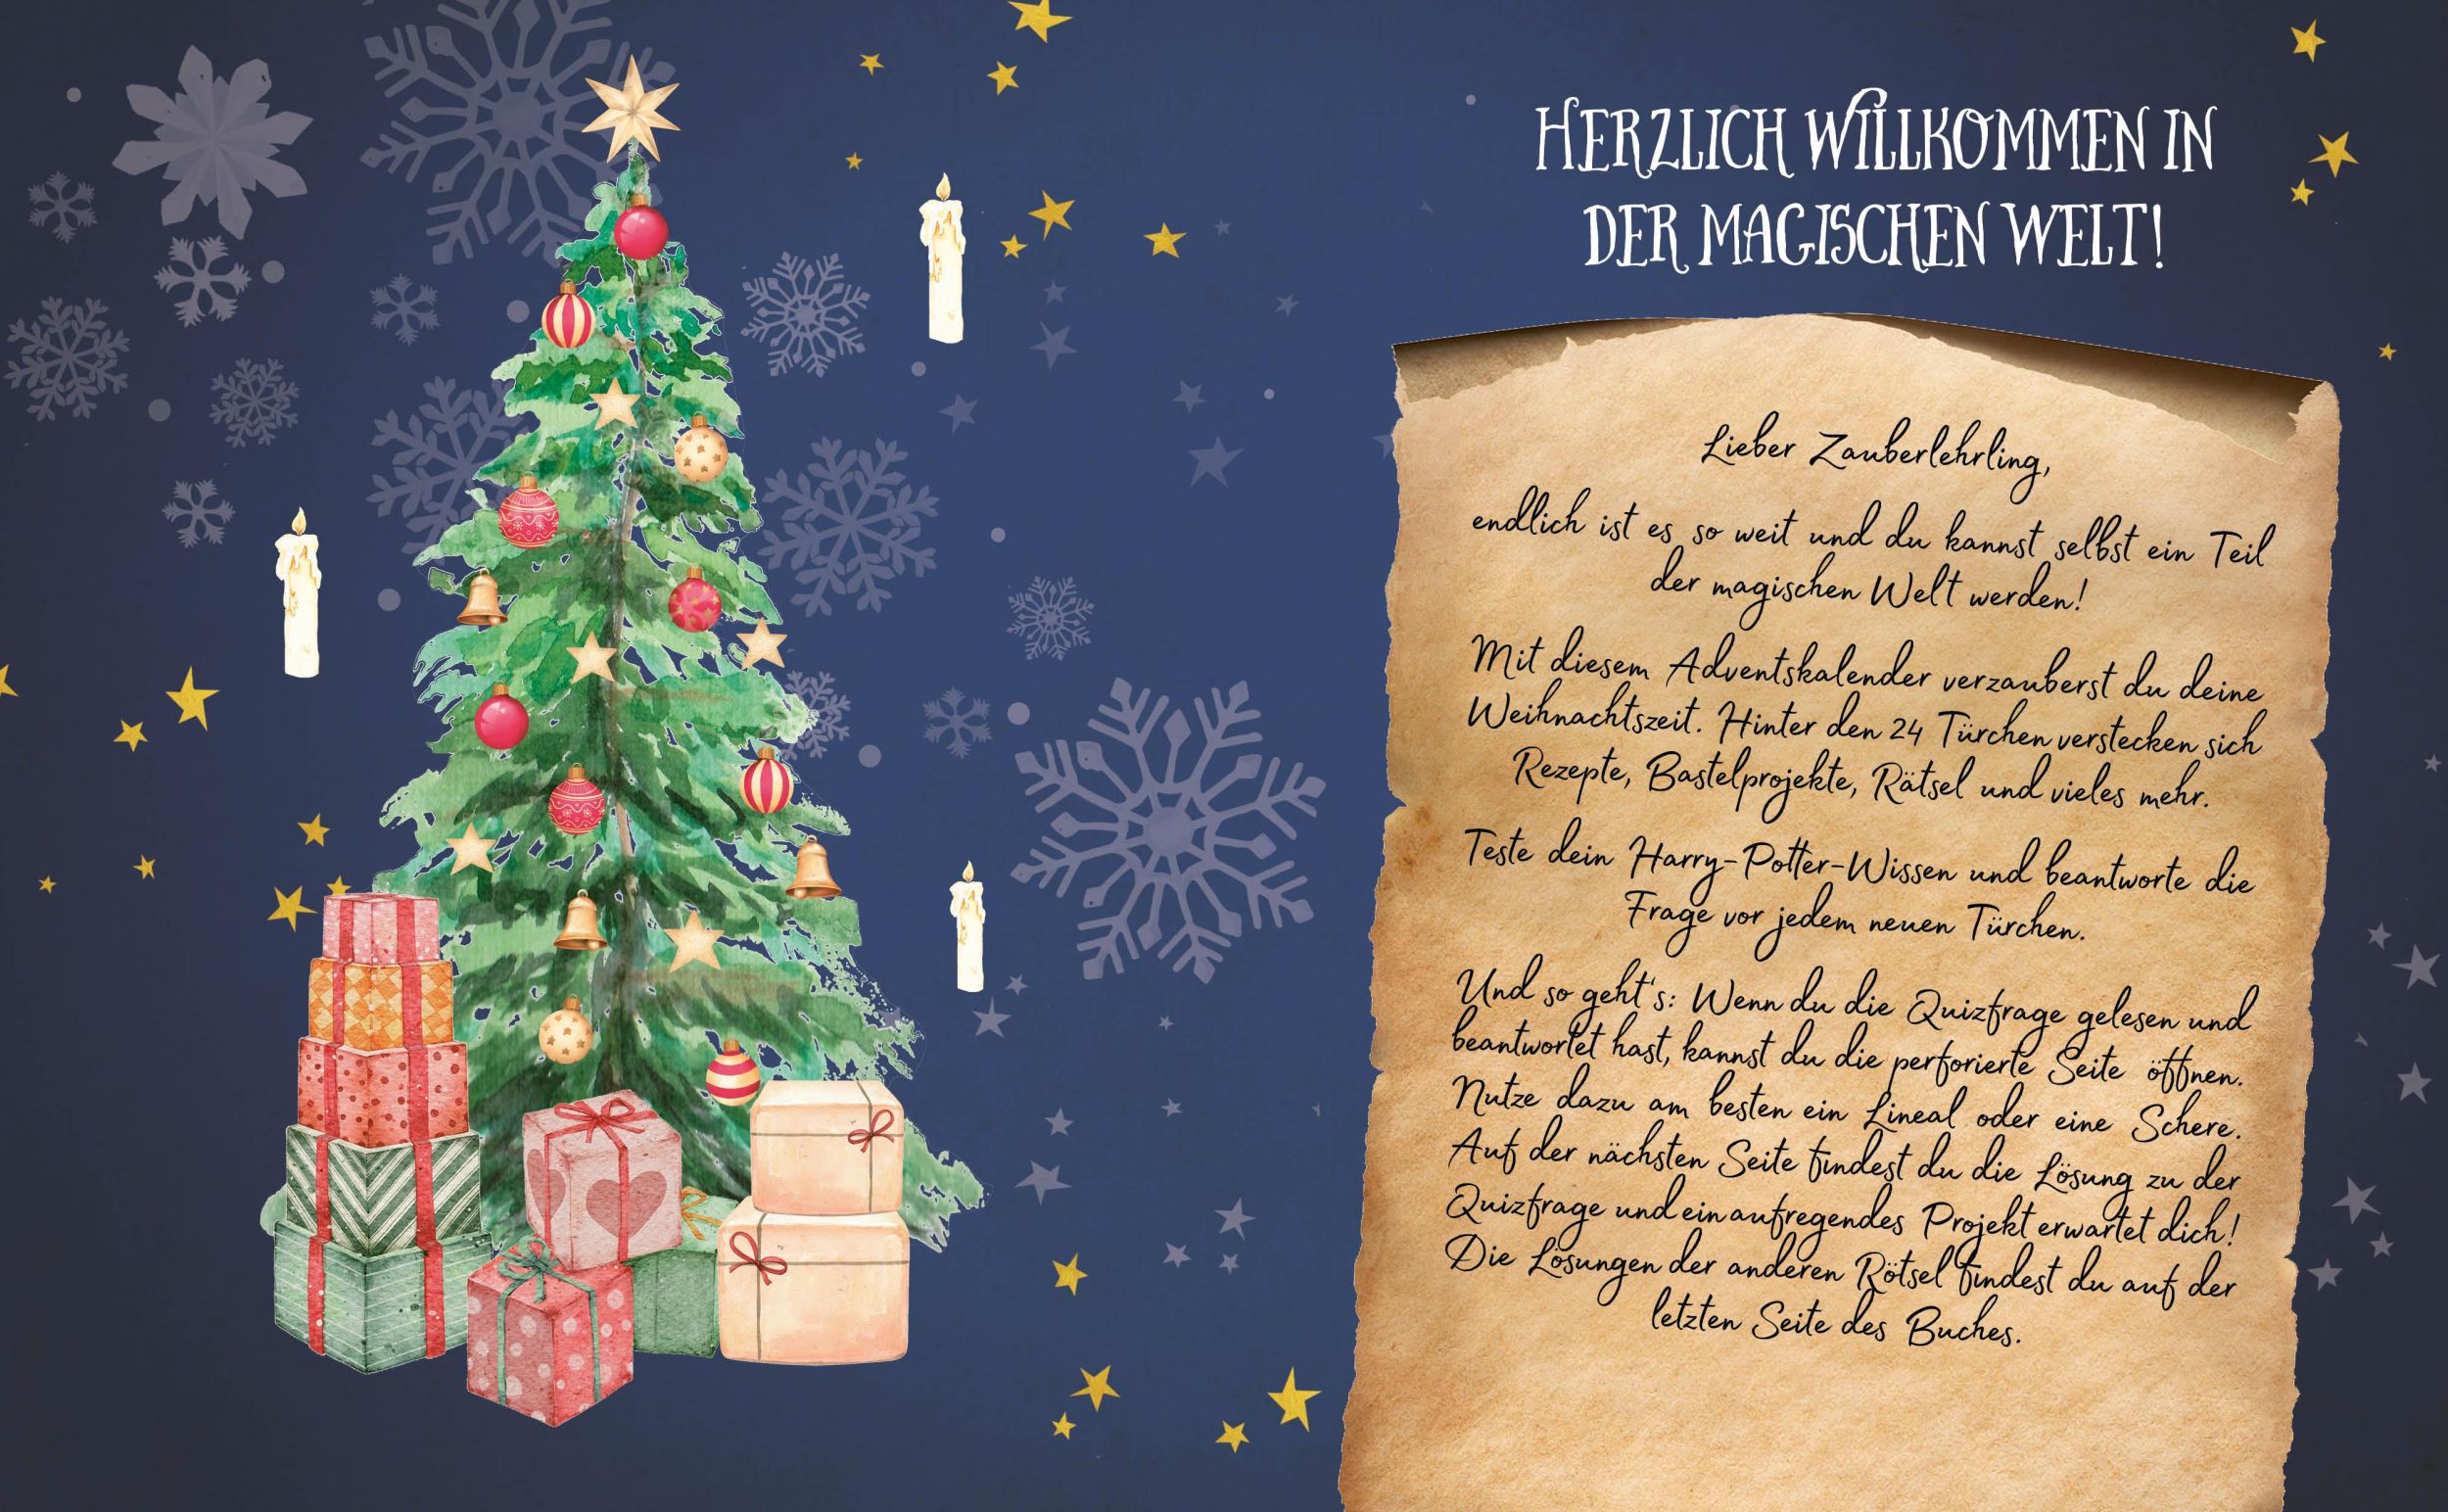 HERZLICH WILLKOMMEN IN
DER MAGISCHEN WELT!
Lieber Zauberlehrling,
endlich ist es so weit und du kannst selbst ein Teil
der magischen Welt werden!
Mit diesem Adventskalender verzauberst du deine
Weihnachtszeit. Hinter den 24 Türchen verstecken sich
Rezepte, Bastelprojekte, Rätsel und vieles mehr.
Teste dein Harry-Potter-Wissen und beantworte die
Frage vor jedem neuen Türchen.
Und so geht's: Wenn du die Quizfrage gelesen und
beantwortet hast, kannst du die perforierte Seite öffnen.
Nutze dazu am besten ein Lineal oder eine Schere.
Auf der nächsten Seite findest du die Lösung zu der
Quizfrage und ein aufregendes Projekt erwartet dich!
Die Lösungen der anderen Rötsel findest du auf der
letzten Seite des Buches.